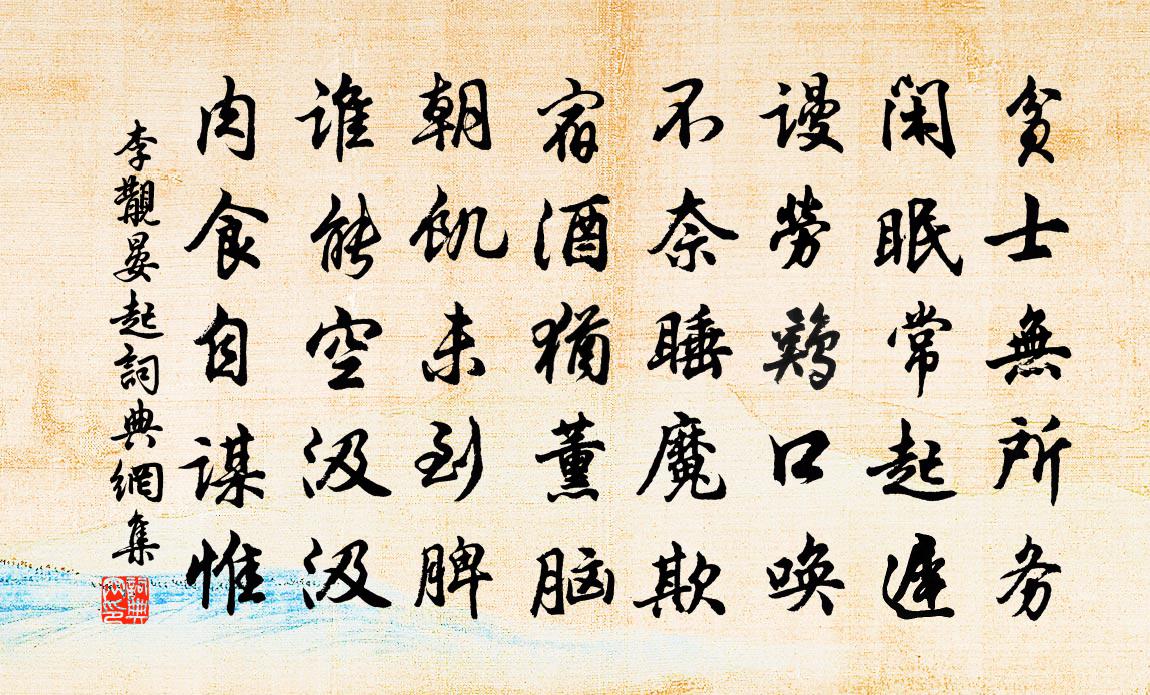 贫士無所务
闲眠常起遲
谩勞鷄口唤
不奈睡魔欺
宿酒猶薰脑
朝飢未到脾
谁能空汲汲
肉食自谋惟
李覯晏起詞典網集